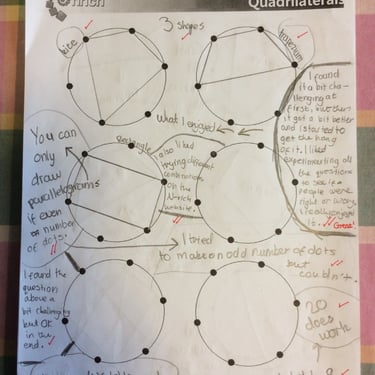 nrich
Quadrilaterals
3 shapes
kite
trapezium
I found
it a bit cha-
llenging at
first, but then
it got a bit better
and I started to
get the hang
of it. I liked
experimenting all
the questions
to see if
people were
right or wrong.
I really enjoyed
it.
Great!
What I enjoyed
I also liked
trying different
combinations
on the
N-rich
website.
Rectangle
You can
only
draw
parallelograms
if even
number
of dots.
I tried
to make an odd number of dots
but
couldn't.
I found the
question
above a
bit challenging
but OK
in the
end.
20
does
work